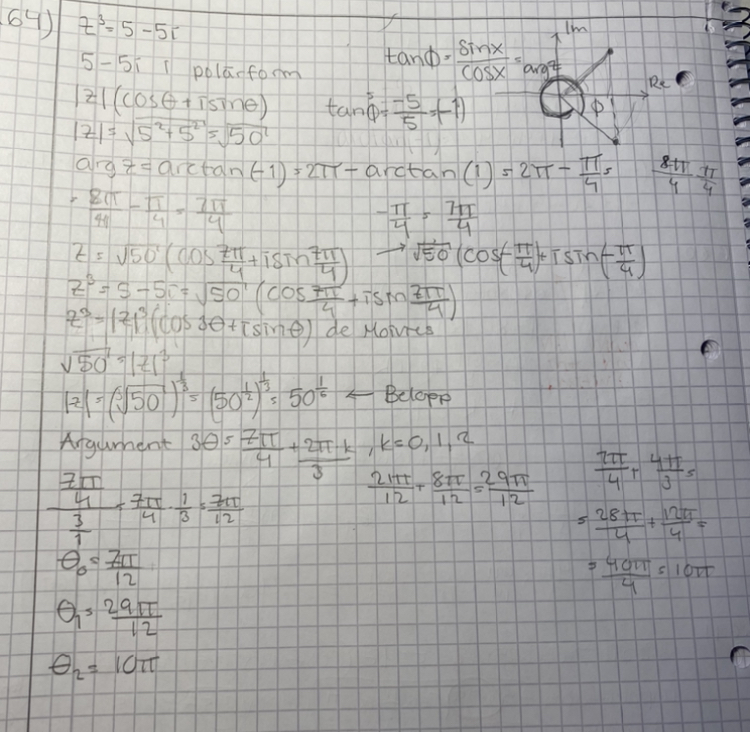 64) z³=5-5i
5-5i i polärform
|z|(cosθ+isinθ)
|z|=√5²+5²=√50
tanϕ=sinx/cosx=argz
tanϕ=-5/5=(-1)
Im
Re
ϕ
argz=arctan(-1)=2π-arctan(1)=2π-π/4= 8π/4-π/4
=8π/4-π/4=7π/4 -π/4=7π/4
z=√50(cos7π/4+isin7π/4) →√50(cos(-π/4)+isin(-π/4)
z³=5-5i=√50(cos7π/4+isin7π/4)
z³=|z|³(cos3θ+isinθ) de Moivres
√50=|z|³
|z|=(³√50)^1/3=(50^1/2)^1/3=50^1/6 ← Belopp
Argument 3θ=7π/4+2πk/3, k=0,1,2
7π/4/3/1=7π/4·1/3=7π/12
21π/12+8π/12=29π/12
7π/4+4π/3=
=28π/4+12π/4=
=40π/4=10π
θ₀=7π/12
θ₁=29π/12
θ₂=10π